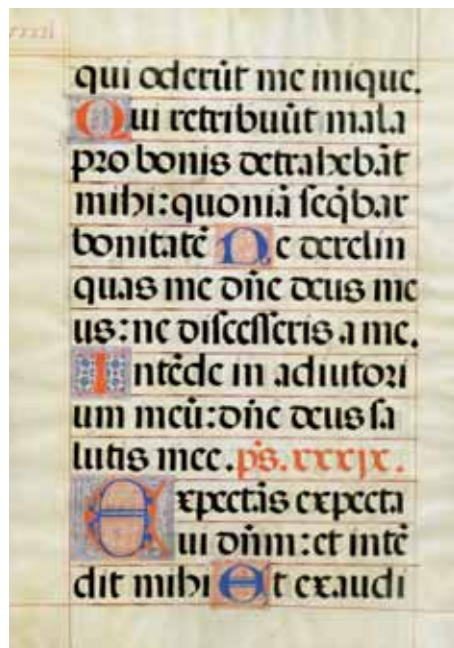 xxxii
qui oderũt me inique.
Qui retribuũt mala
pro bonis detrahebãt
mihi: quoniã seq̃bar
bonitatẽ Ne derelin
quas me dñe deus me
us: ne discesseris a me.
Intẽde in adiutori
um meũ: dñe deus sa
lutis mee. ps. xxxix.
Expectãs expecta
ui dñm: et intẽ
dit mihi Et exaudi